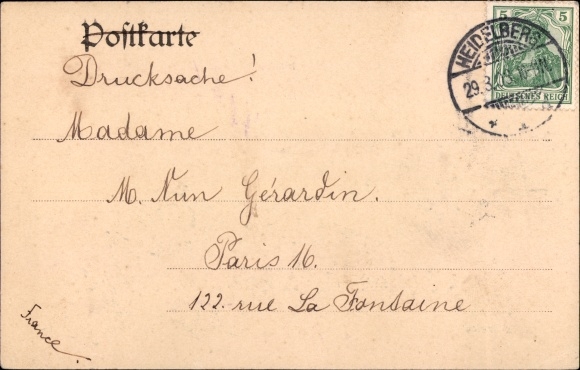 Postkarte
Drucksache!
Madame
M. Nun Gérardin.
Paris 16.
122. rue La Fontaine
France.
HEIDELBERG
29.3.
5 5
DEUTSCHES REICH